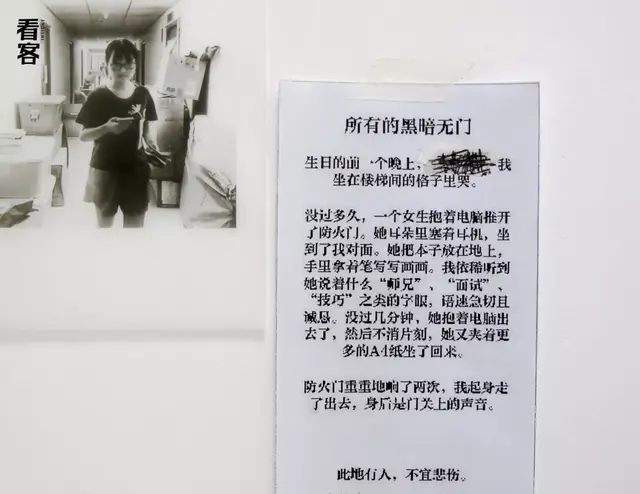 看客
所有的黑暗无门
生日的前一个晚上，
我
坐在楼梯间的格子里哭。
没过多久，一个女生抱着电脑推开
了防火门。她耳朵里塞着耳机，坐
到了我对面。她把本子放在地上，
手里拿着笔写写画画。我依稀听到
她说着什么“师兄”、“面试”、
“技巧”之类的字眼，语速急切且
诚恳。没过几分钟，她抱着电脑出
去了，然后不消片刻，她又夹着更
多的A4纸坐了回来。
防火门重重地响了两次，我起身走
了出去，身后是门关上的声音。
此地有人，不宜悲伤。